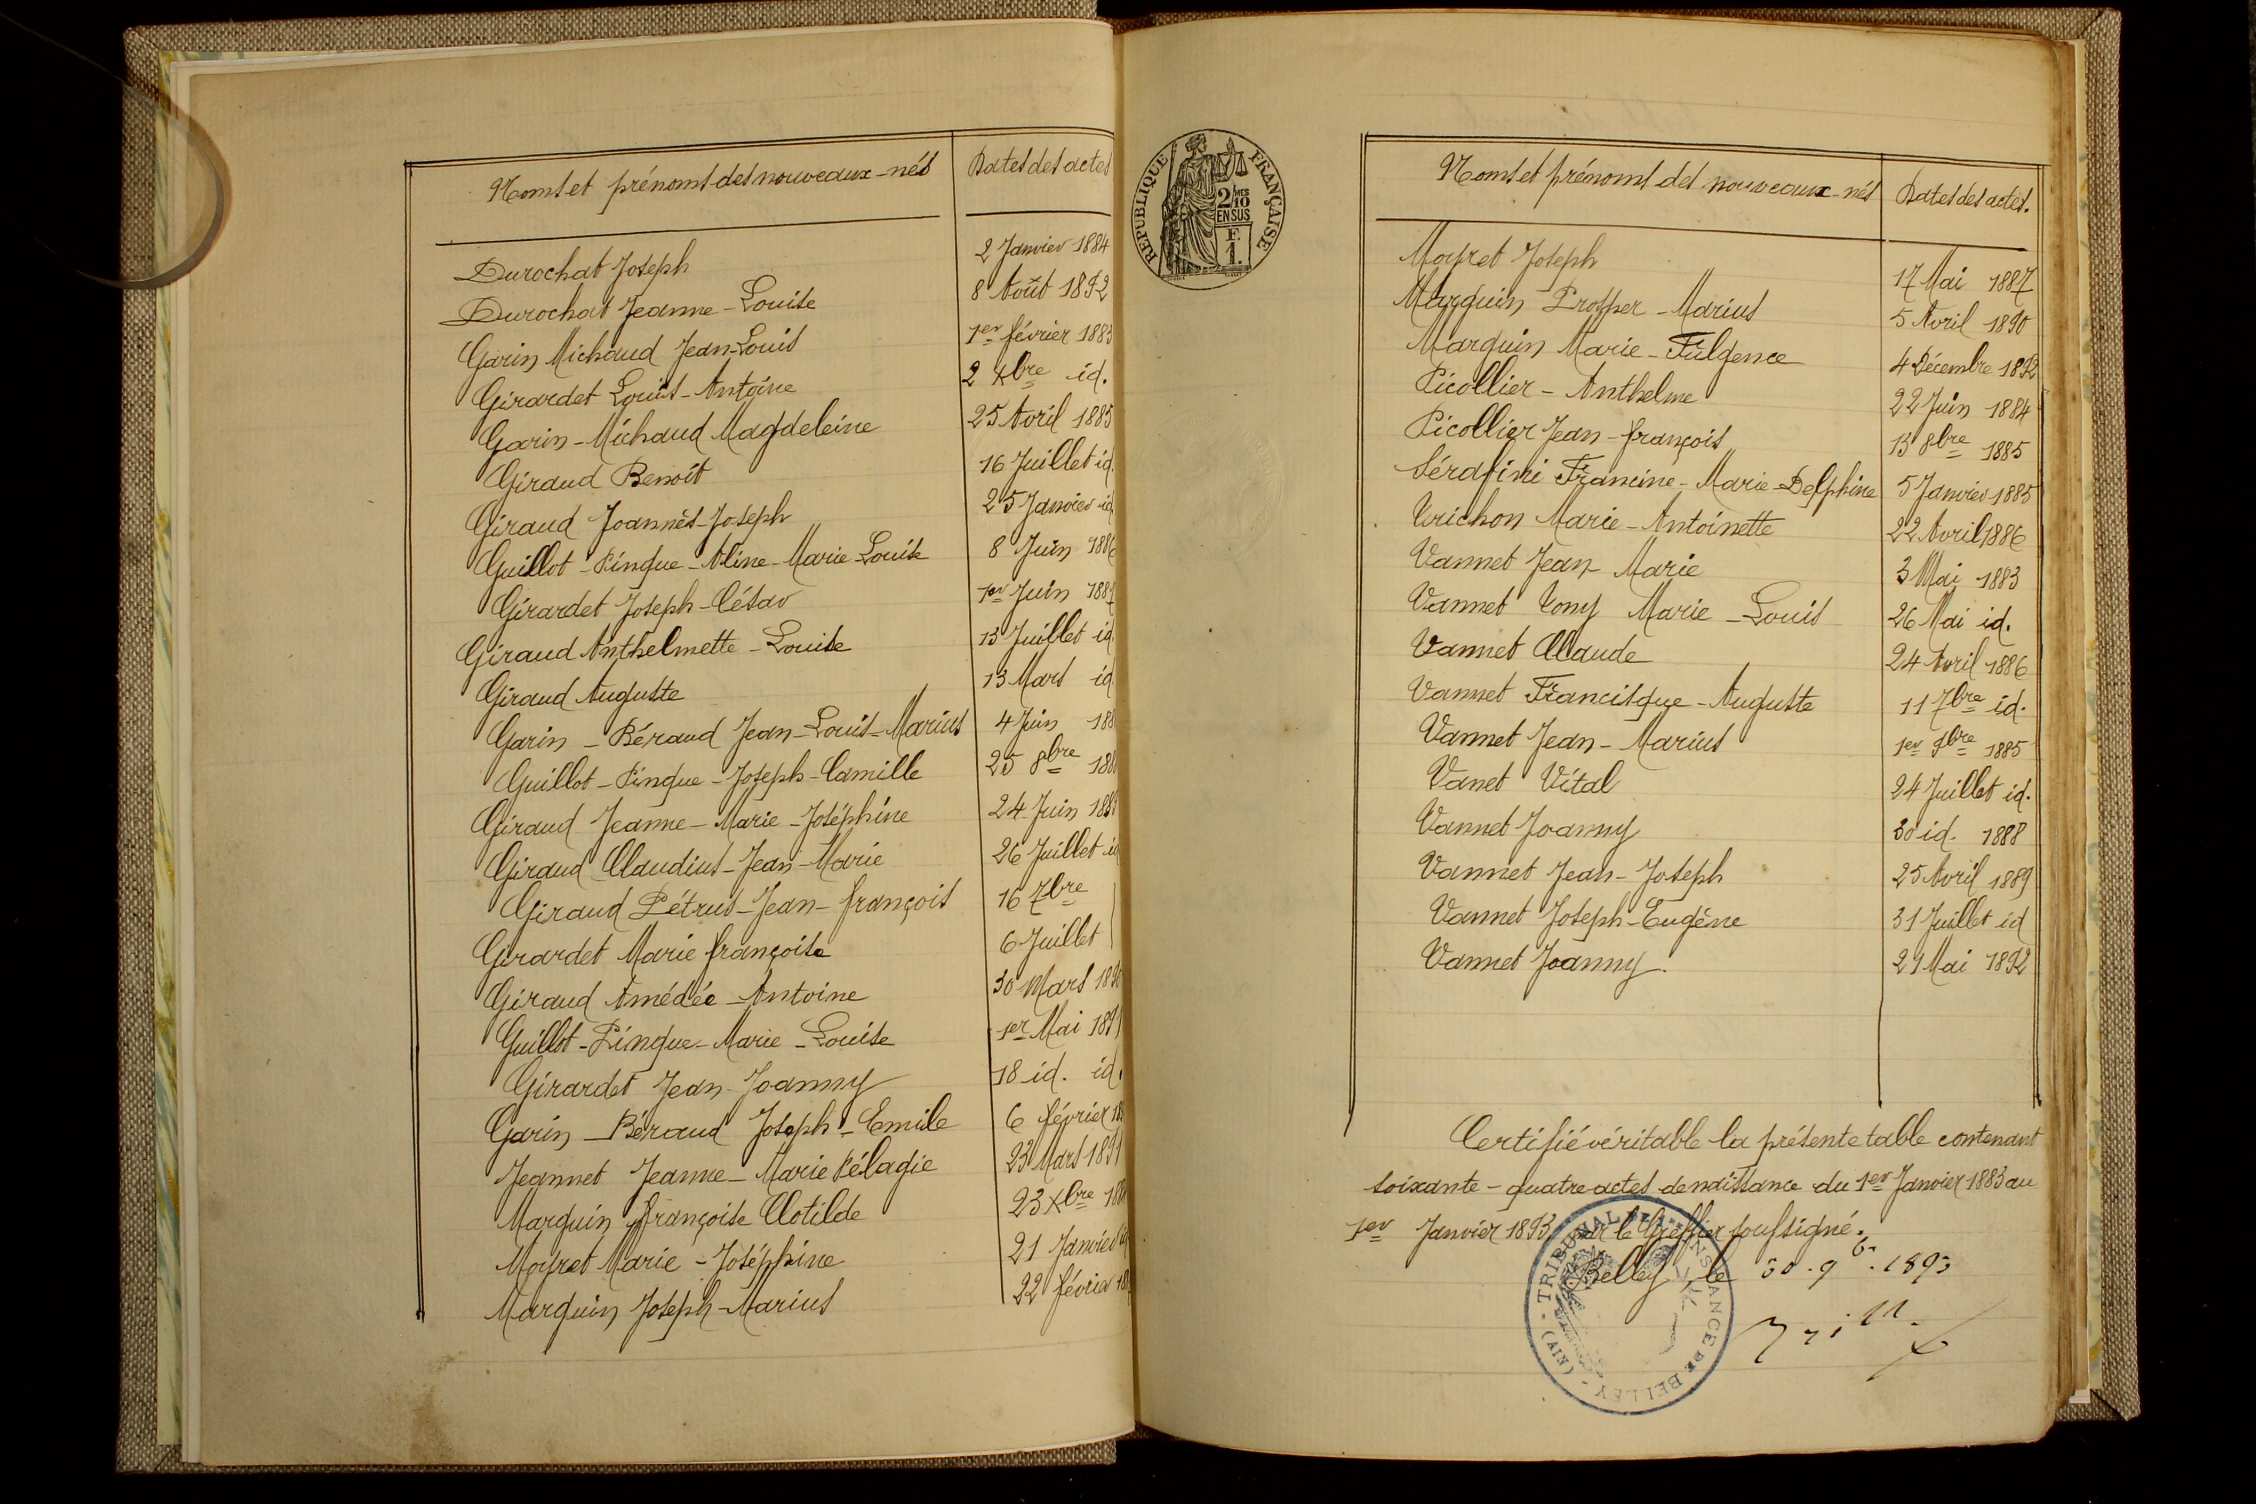 Noms et prénoms des nouveaux-nés Dates des actes
Durochat Joseph 2 Janvier 1884
Durochat Jeanne-Louise 8 Août 1892
Garin Michaud Jean-Louis 1er février 1883
Girardet Louis-Antoine 2 Xbre id.
Garin-Michaud Magdeleine 25 Avril 1885
Giraud Benoît 16 Juillet id.
Giraud Joannès-Joseph 25 Janvier id
Guillot-Pingue-Aline-Marie-Louise 8 Juin 1886
Girardet Joseph-César 1er Juin 188
Giraud Anthelmette-Louise 13 Juillet id
Giraud Auguste 13 Mars id
Garin-Béraud Jean-Louis-Marius 4 Juin 188
Guillot-Pingue-Joseph-Camille 25 8bre 188
Giraud Jeanne-Marie-Joséphine 24 Juin 188
Giraud Claudius-Jean-Marie 26 Juillet id
Giraud Pétrus-Jean-françois 16 7bre
Girardet Marie françoise 6 Juillet
Giraud Amédée-Antoine 30 Mars 1890
Guillot-Pingue-Marie-Louise 1er Mai 1891
Girardet Jean-Joanny 18 id. id.
Garin-Béraud Joseph-Emile 6 février 18
Jeannet Jeanne-Marie Pélagie 23 Mars 1891
Marquin françoise Clotilde 23 Xbre 188
Moyret Marie-Joséphine 21 Janvier
Marquin Joseph-Marius 22 février 18
REPUBLIQUE FRANÇAISE
2/10 MES
EN SUS
F.
1.
Noms et prénoms des nouveaux-nés Dates des actes.
Moyret Joseph 17 Mai 1887
Marquin Prosper-Marius 5 Avril 1890
Marquin Marie-Fulgence 4 Décembre 1892
Picollier-Anthelme 22 Juin 1884
Picollier Jean-françois 13 8bre 1885
Sérafini Francine-Marie-Delphine 5 Janvier 1885
Trichon Marie-Antoinette 22 Avril 1886
Vannet Jean-Marie 3 Mai 1883
Vannet Tony Marie-Louis 26 Mai id.
Vannet Claude 24 Avril 1886
Vannet Francisque-Auguste 11 7bre id.
Vannet Jean-Marius 1er 9bre 1885
Vanet Vital 24 Juillet id.
Vannet Joanny 30 id. 1888
Vannet Jean-Joseph 25 Avril 1889
Vannet Joseph-Eugène 31 Juillet id
Vannet Joanny. 29 Mai 1892
Certifié véritable la présente table contenant
soixante-quatre actes de naissance du 1er Janvier 1883 au
1er Janvier 1893, par le Greffier soussigné.
Belley, le 30. 9b. 1893
TRIBUNAL DE 1ere INSTANCE DE BELLEY (AIN)